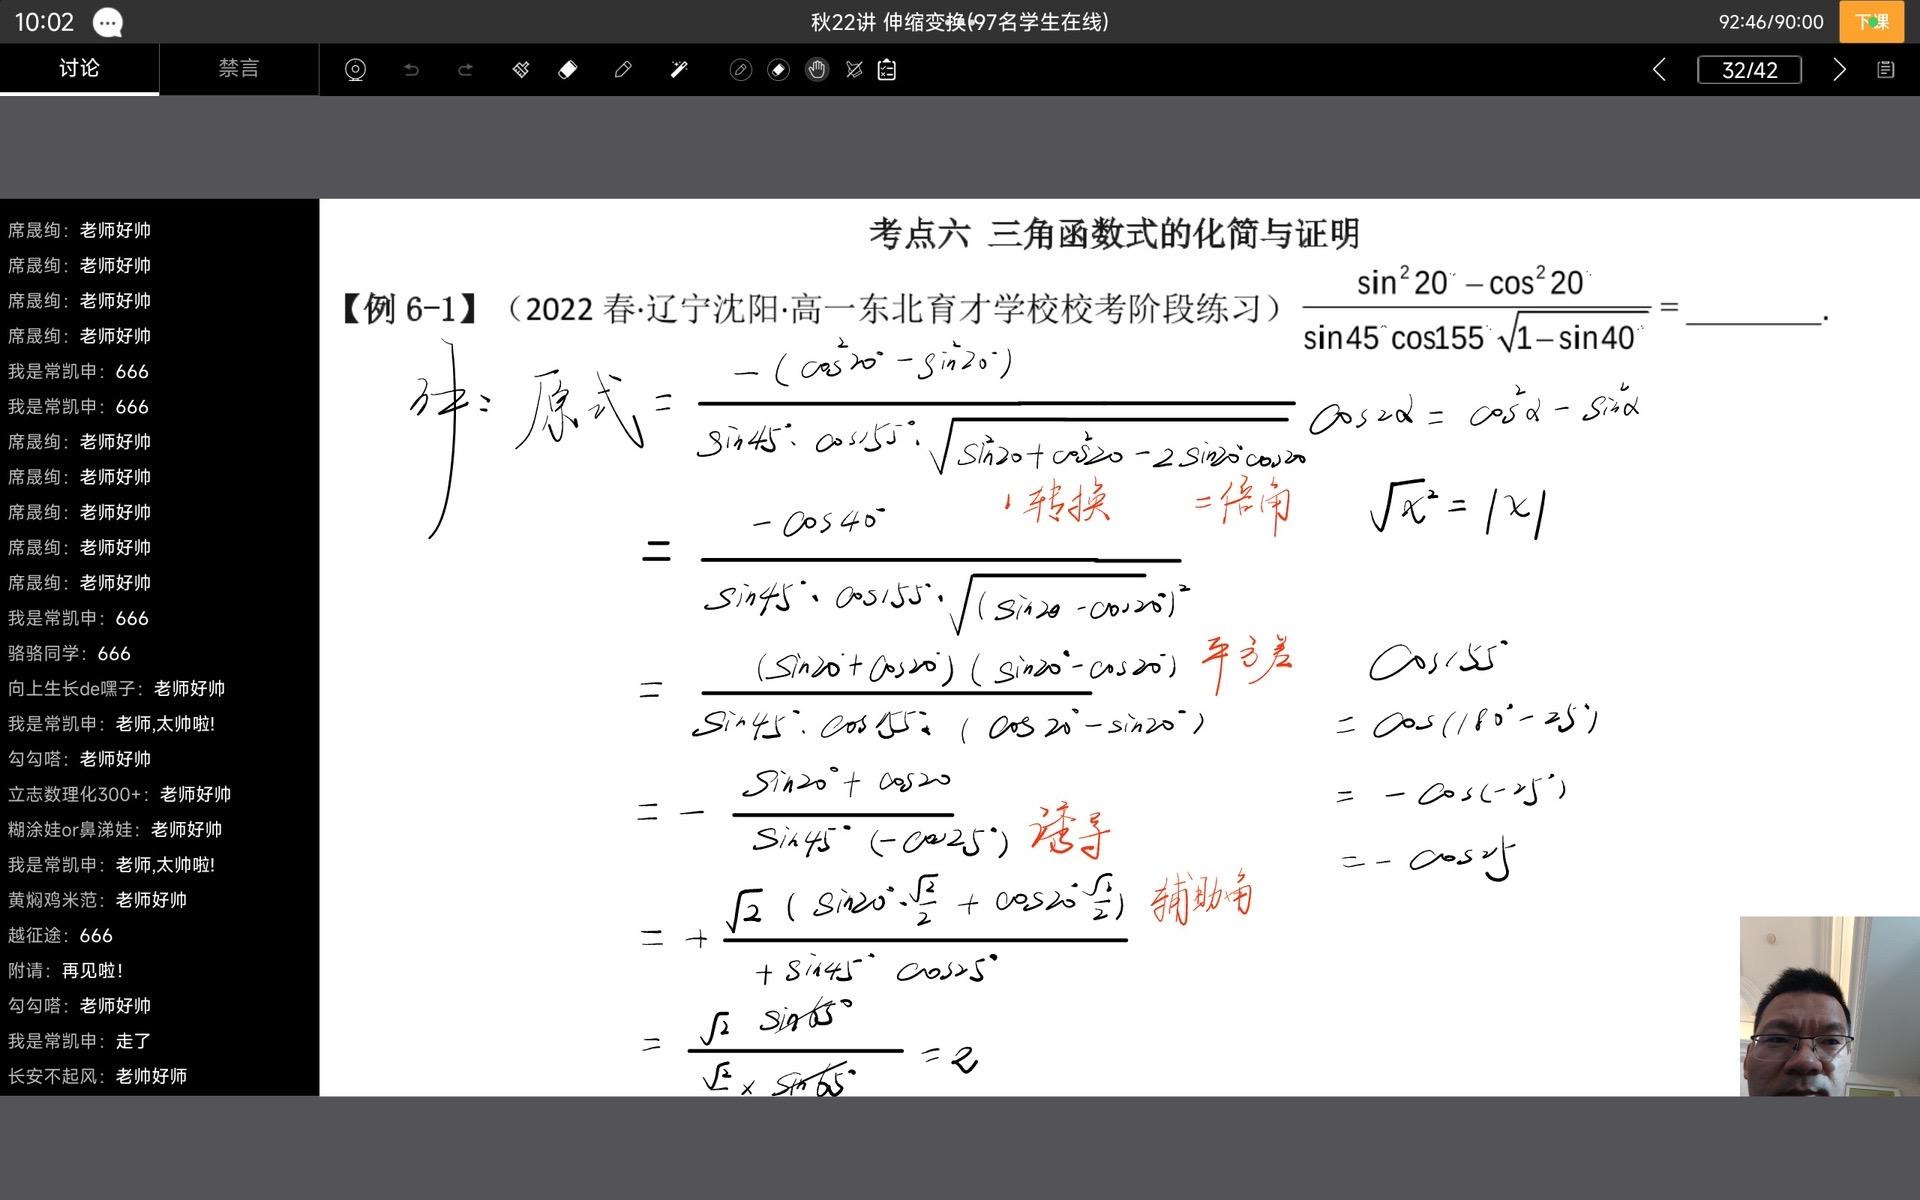 10:02
秋22讲 伸缩变换(97名学生在线)
92:46/90:00
下课
讨论
禁言
32/42
席晟绚：老师好帅
席晟绚：老师好帅
席晟绚：老师好帅
席晟绚：老师好帅
我是常凯申：666
我是常凯申：666
席晟绚：老师好帅
席晟绚：老师好帅
席晟绚：老师好帅
席晟绚：老师好帅
席晟绚：老师好帅
我是常凯申：666
骆骆同学：666
向上生长de嘿子：老师好帅
我是常凯申：老师,太帅啦!
勾勾嗒：老师好帅
立志数理化300+：老师好帅
糊涂娃or鼻涕娃：老师好帅
我是常凯申：老师,太帅啦!
黄焖鸡米范：老师好帅
越征途：666
附请：再见啦!
勾勾嗒：老师好帅
我是常凯申：走了
长安不起风：老帅好师
考点六 三角函数式的化简与证明
【例 6-1】（2022 春·辽宁沈阳·高一东北育才学校校考阶段练习） (sin²20° − cos²20°) / (sin45°cos155°√(1−sin40°)) = ________.
解: 原式 = −(cos²20° − sin²20°) / (sin45°· cos155°· √(sin²20+cos²20 − 2sin20°cos20))
1转换 =倍角
= −cos40° / (sin45°· cos155°· √(sin20 − cos20°)²)
= (sin20°+cos20°)(sin20°−cos20°) / (sin45°· cos155°· (cos20° − sin20°)) 平方差
= − (sin20°+cos20) / (sin45°(−cos25°)) 诱导
= + √2(sin20°·√2/2 + cos20°√2/2) / (+sin45° cos25°) 辅助角
= √2 sin65° / (√2/2 × sin65°) = 2
cos2α = cos²α − sin²α
√x² = |x|
cos155°
= cos(180°−25°)
= −cos(−25°)
= −cos25